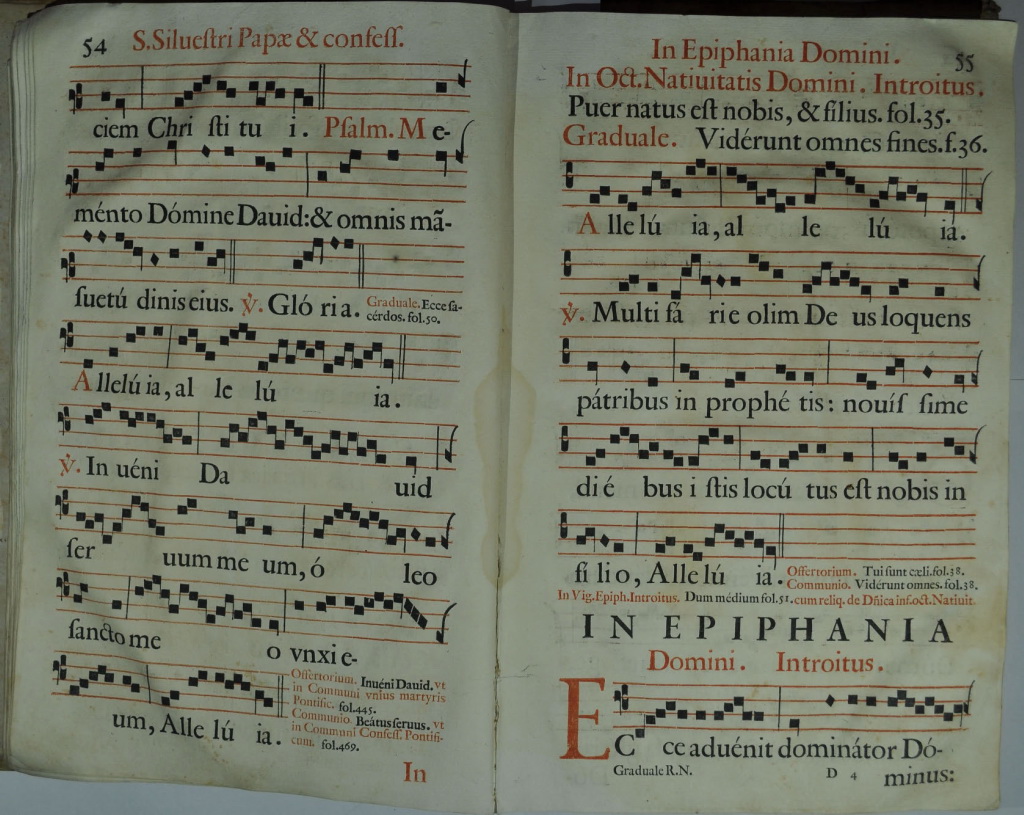 54 S.Silueſtri Papæ & confeſſ.
ciem Chri ſti tu i. Pſalm. M e-
ménto Dómine Dauid:& omnis mã-
ſuetú dinis eius. ℣. Gló ria. Graduale. Ecce ſa-
cérdos. fol.50.
Allelú ia, al le lú ia.
℣. In uéni Da uid
ſer uum me um, ó leo
ſancto me o vnxi e-
um, Alle lú ia.
Offertorium. Inuéni Dauid. vt
in Communi vnius martyris
Pontific. fol.445.
Communio. Beátus ſeruus. vt
in Communi Confeſſ. Pontifi-
cum. fol.469.
In
In Epiphania Domini. 55
In Oct. Natiuitatis Domini. Introitus.
Puer natus eſt nobis, & filius. fol.35.
Graduale. Vidérunt omnes fines. f.36.
A lle lú ia, al le lú ia.
℣. Multi fá rie olim De us loquens
pátribus in prophé tis: nouíſ ſime
di é bus i ſtis locú tus eſt nobis in
fi li o, Alle lú ia. Offertorium. Tui ſunt cæli. fol.38.
Communio. Vidérunt omnes. fol.38.
In Vig. Epiph. Introitus. Dum médium fol.51. cum reliq. de Dñica inf. oct. Natiuit.
IN EPIPHANIA
Domini. Introitus.
EC ce aduénit dominátor Dó-
Graduale R.N. D 4 minus: